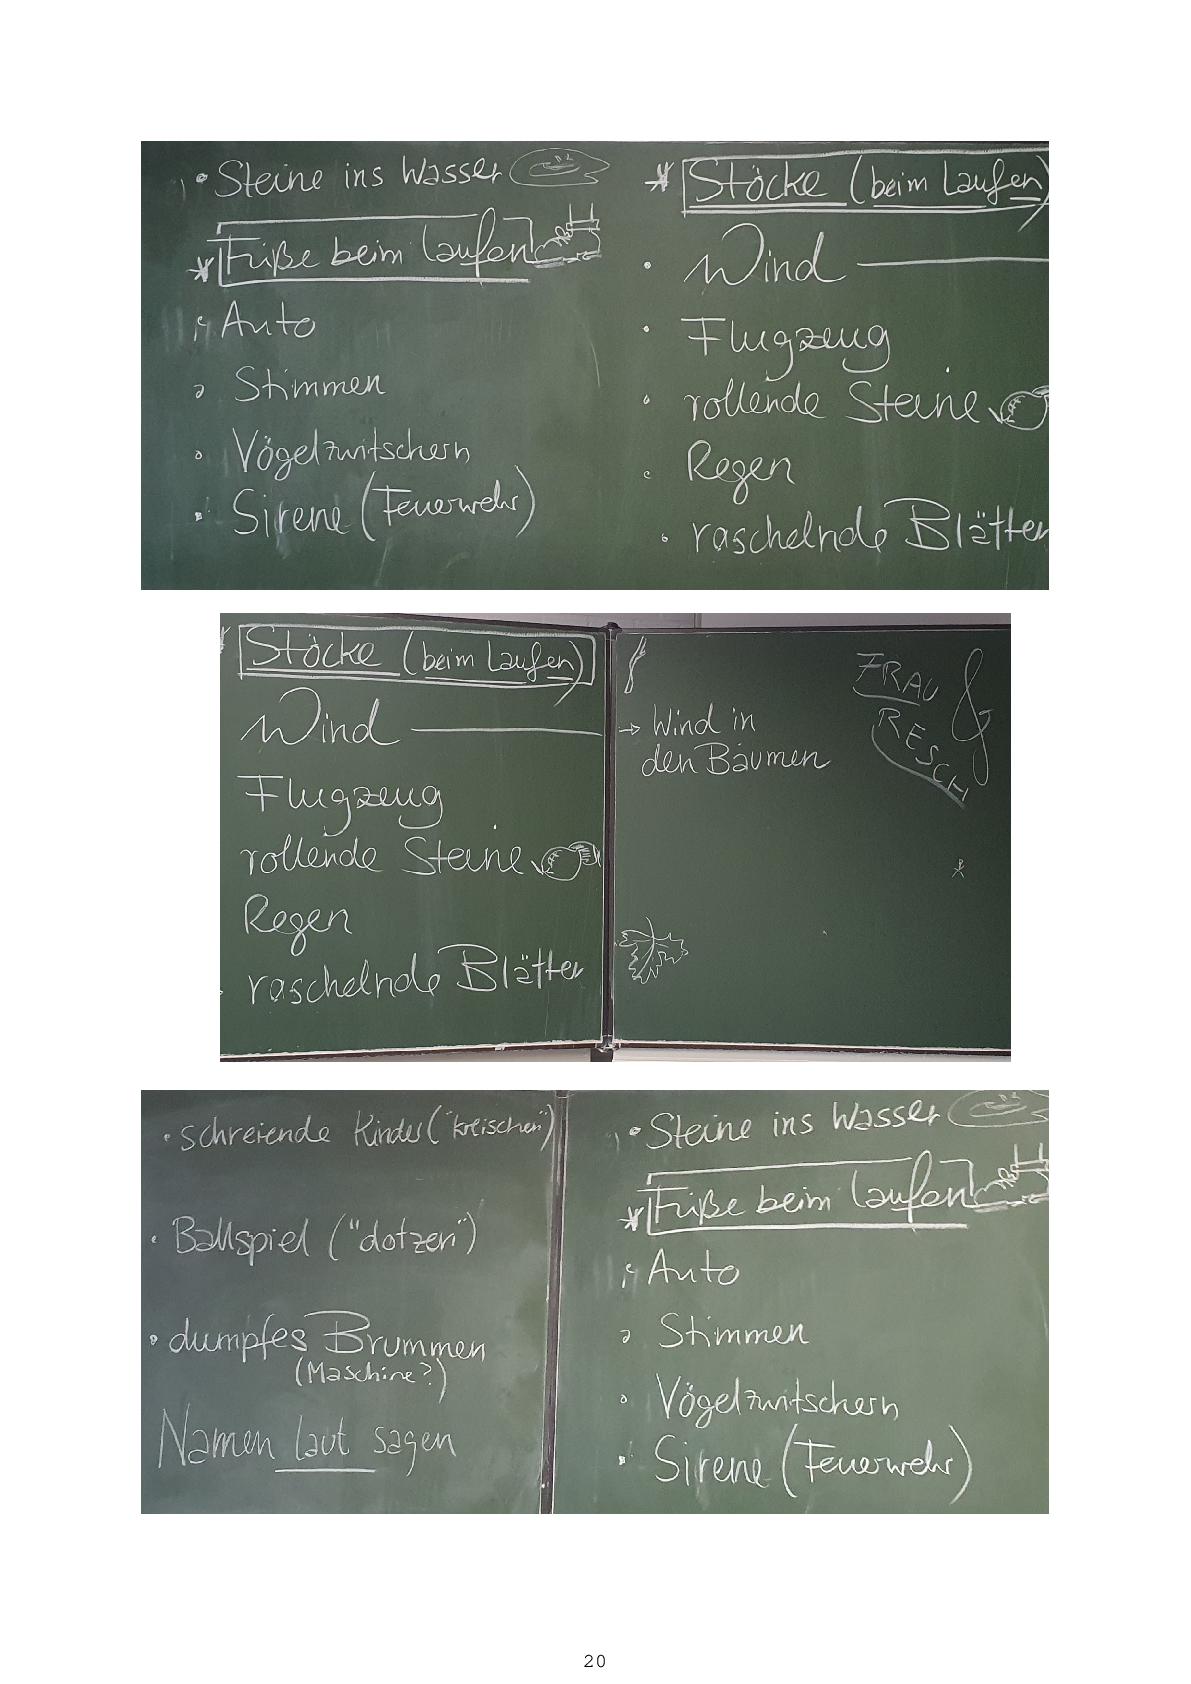 • Steine ins Wasser
* Füße beim Laufen
• Auto
• Stimmen
• Vögelzwitschern
• Sirene (Feuerwehr)
* Stöcke (beim Laufen)
• Wind
• Flugzeug
• rollende Steine
• Regen
• raschelnde Blätter
Stöcke (beim Laufen)
Wind
Flugzeug
rollende Steine
Regen
raschelnde Blätter
→ Wind in
den Bäumen
FRAU
RESCH
• schreiende Kinder ("kreischen")
• Ballspiel ("dotzen")
• dumpfes Brummen
(Maschine?)
Namen laut sagen
• Steine ins Wasser
* Füße beim Laufen
• Auto
• Stimmen
• Vögelzwitschern
• Sirene (Feuerwehr)
20